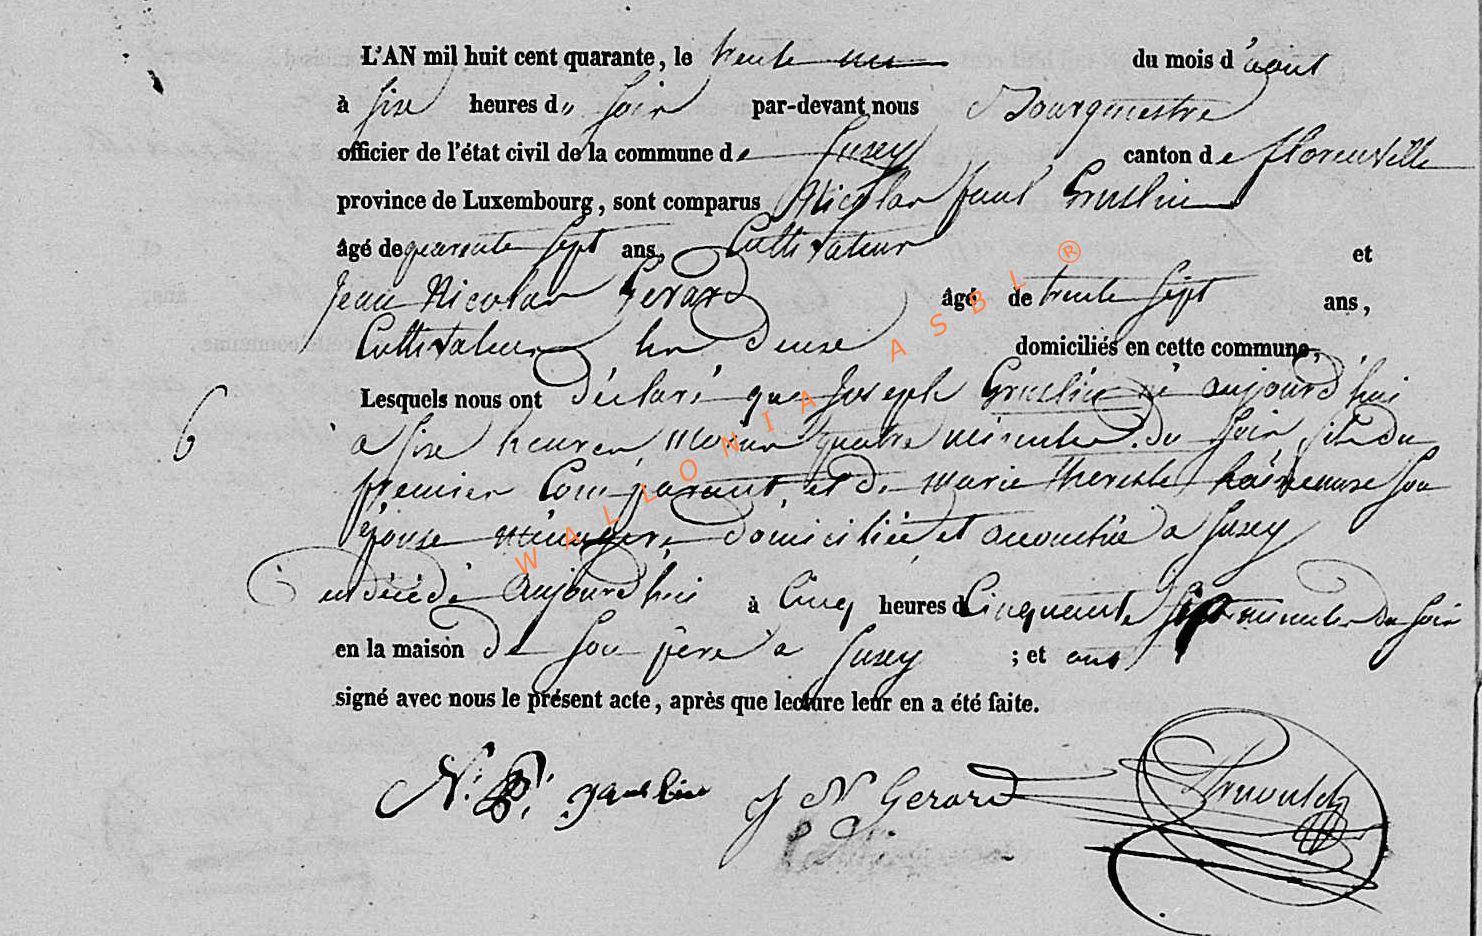 L'AN mil huit cent quarante, le trente un du mois d'aout
à six heures du soir par-devant nous Bourgmestre
officier de l'état civil de la commune de Suxey canton de florenville
province de Luxembourg, sont comparus Nicolas paul
âgé de quarante sept ans, Cultivateur et
Jean Nicolas Gerard âgé de trente sept ans,
Cultivateur les deux domiciliés en cette commune,
Lesquels nous ont déclaré que Joseph né aujourd'hui
6
a six heures, moins quatre minutes du soir, fils du
premier Comparant, et de marie therese son
épouse ménagère, domiciliée et accouchée a Suxey
est décédé aujourd'hui à Cinq heures Cinquante sept minutes du soir
en la maison de son père a Suxey ; et ont
signé avec nous le présent acte, après que lecture leur en a été faite.
N. P. J N Gerard
WALLONIA ASBL ®